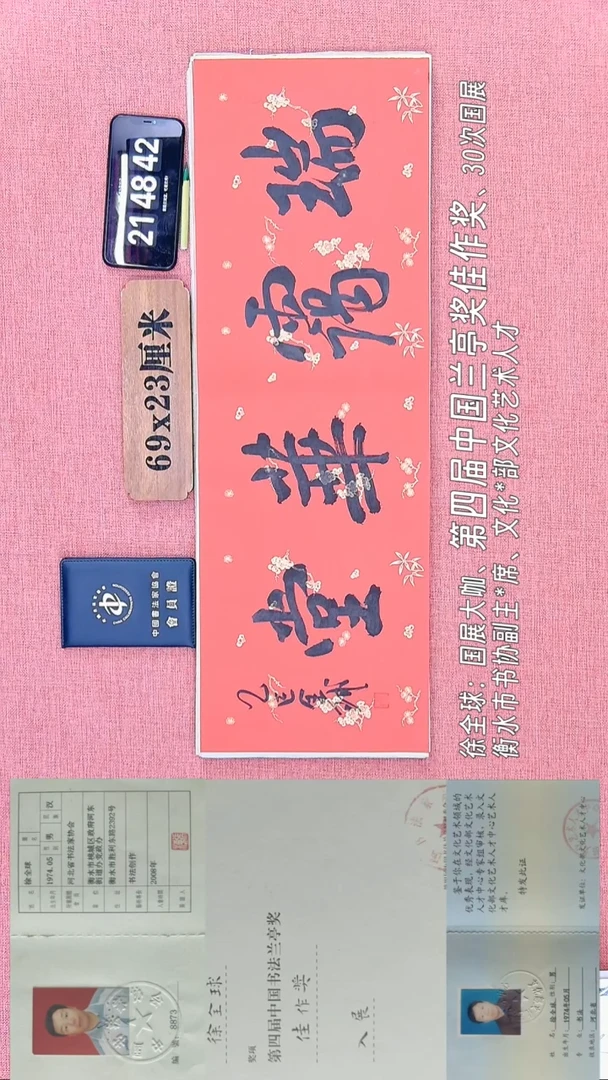 21 48 42
69x23厘米
中國書法家協會
會員證
瑞靄華堂
徐全球：国展大咖、第四届中国兰亭奖佳作奖、30次国展
衡水市书协副主*席、文化*部文化艺术人才
徐全球
1974.05 男 汉
河北省书法家协会
衡水市桃城区政府河东
街道办党政办
衡水市胜利东路2202号
书法创作
2008年
8873
徐全球
奖项
第四届中国书法兰亭奖
佳作奖
入展
鉴于你在文化艺术领域的
优秀表现，经文化部文化艺术
人才中心专家组审核，录入文
化部文化艺术人才中心艺术人
才库。
特发此证